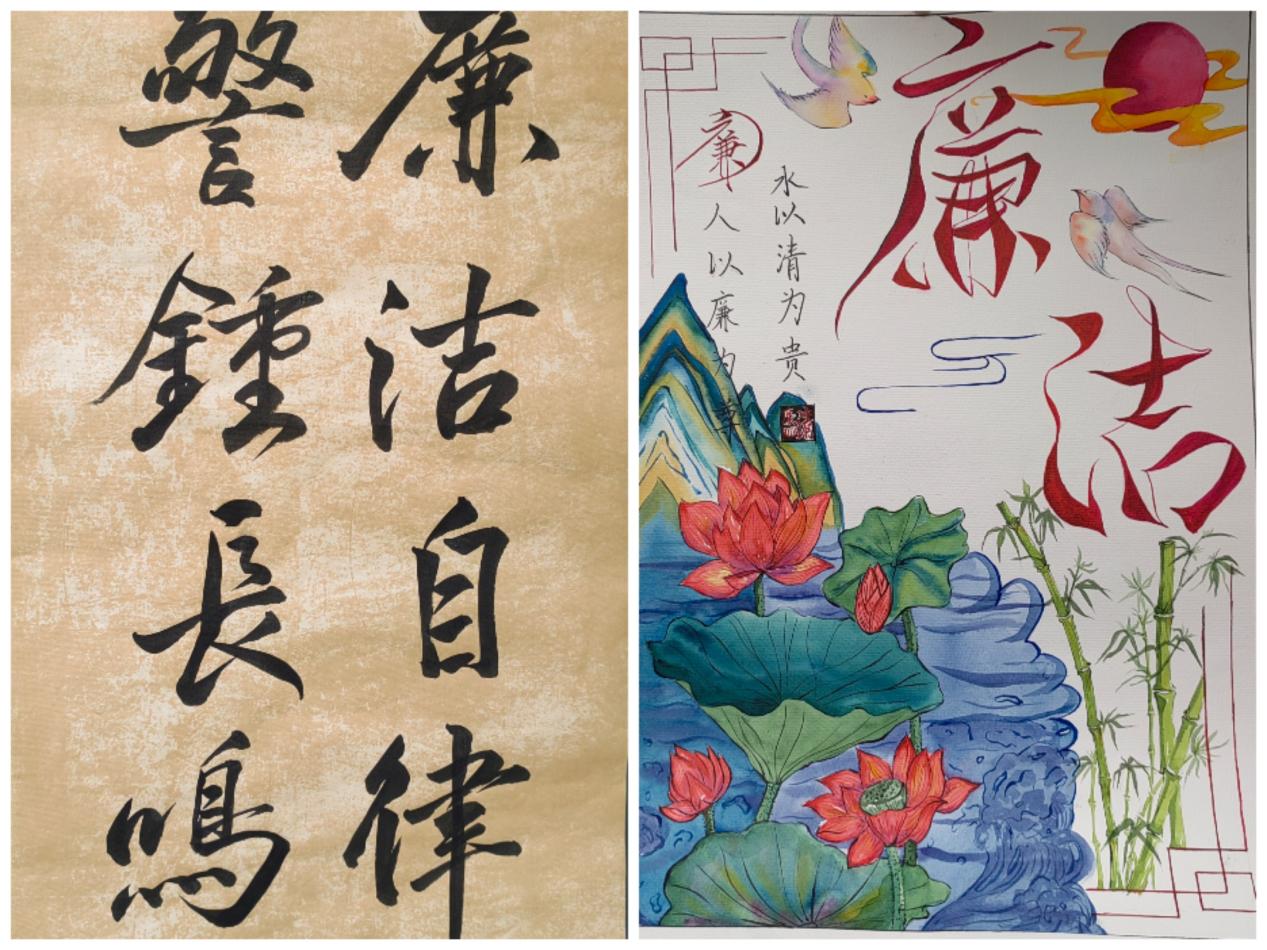 廉洁自律
警鍾長鳴
廉洁
水以清为贵
廉
人以廉为尊